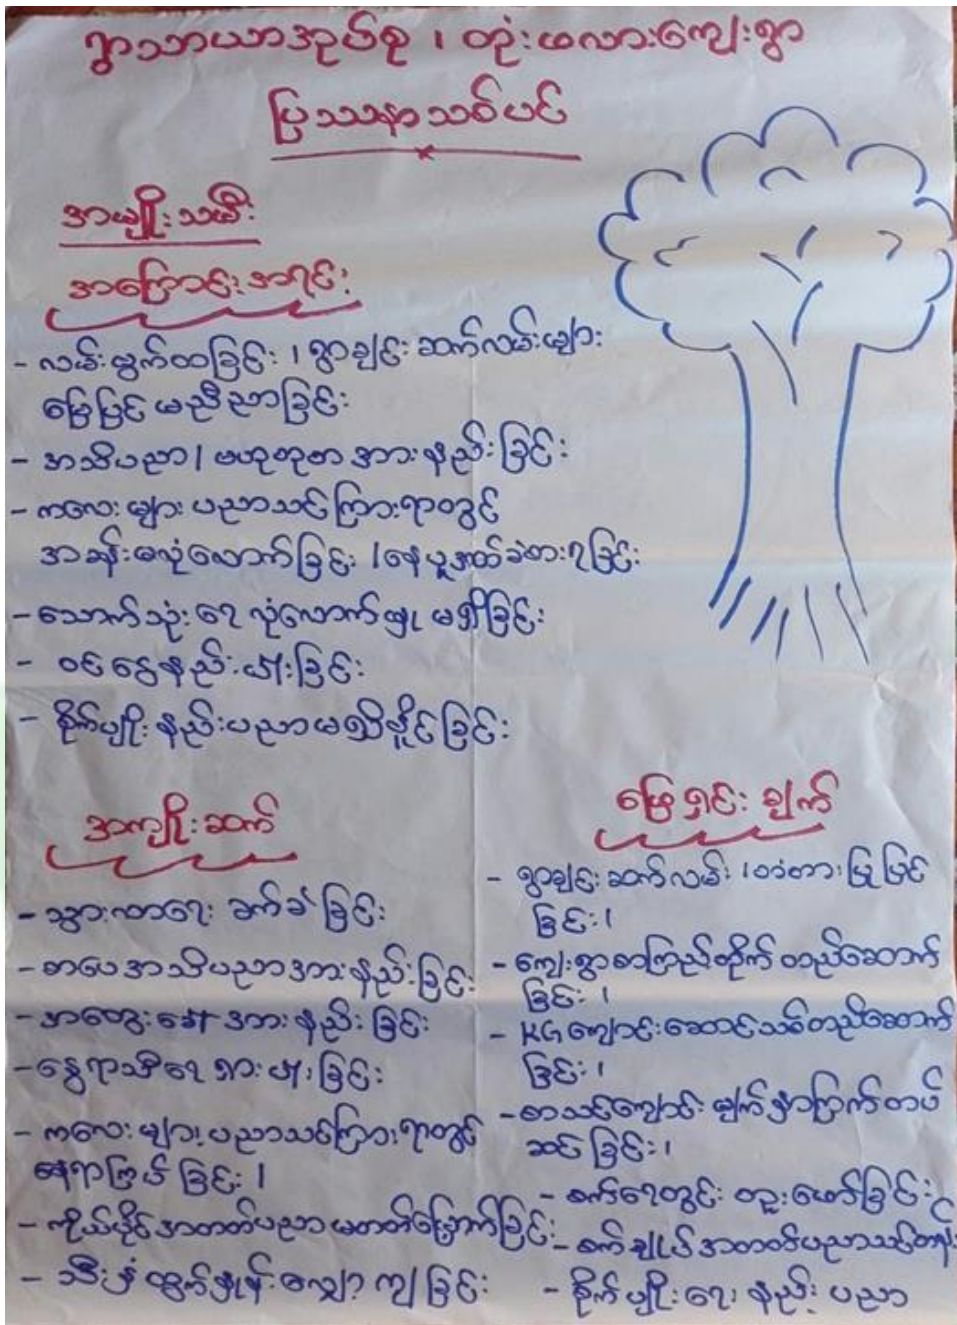 ရွာသာယာအုပ်စု ၊ တုံးဖလားကျေးရွာ
ပြဿနာသစ်ပင်
အမျိုးသမီး
အကြောင်းအရင်း
- လမ်းပွက်ထခြင်း ၊ ရွာချင်းဆက်လမ်းများ
မြေပြင်မညီညာခြင်း
- အသိပညာ / ဗဟုသုတ အားနည်းခြင်း
- ကလေးများ ပညာသင်ကြားရာတွင်
အခန်းမလုံလောက်ခြင်း / နေပူဒဏ်ခံစားရခြင်း
- သောက်သုံးရေ လုံလောက်မှု မရှိခြင်း
- ဝင်ငွေနည်းပါးခြင်း
- စိုက်ပျိုးနည်းပညာမရရှိနိုင်ခြင်း
အကျိုးဆက်
- သွားလာရေး ခက်ခဲခြင်း
- စာပေအသိပညာအားနည်းခြင်း
- အတွေးခေါ် အားနည်းခြင်း
- နွေရာသီရေရှားပါးခြင်း
- ကလေးများပညာသင်ကြားရာတွင်
နေရာကြပ်ခြင်း ၊
- ကိုယ်ပိုင်အတတ်ပညာမတတ်မြောက်ခြင်း
- သီးနှံထွက်နှုန်းလျော့ကျခြင်း
ဖြေရှင်းချက်
- ရွာချင်းဆက်လမ်း ၊ တံတားပြုပြင်
ခြင်း ၊
- ကျေးရွာစာကြည့်တိုက် တည်ဆောက်
ခြင်း ၊
- KG ကျောင်းဆောင်သစ်တည်ဆောက်
ခြင်း ၊
- စာသင်ကျောင်း မျက်နှာကြက်တပ်
ဆင်ခြင်း ၊
- စက်ရေတွင်း တူးဖော်ခြင်း
- စက်ချုပ်အတတ်ပညာသင်တန်း
- စိုက်ပျိုးရေး နည်းပညာ